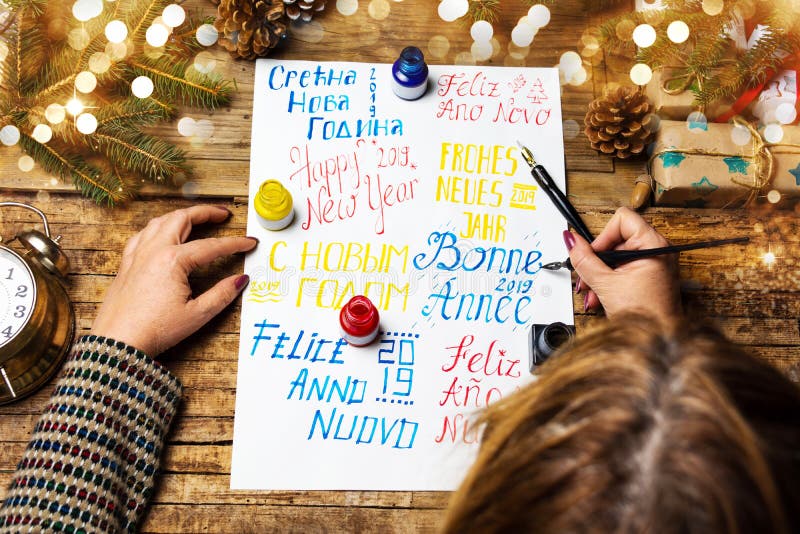 Срећна 2019
Нова
Година
Feliz
Ano Novo
Happy 2019
New Year
FROHES
NEUES 2019
JAHR
С НОВЫМ
2019 ГОДОМ
Bonne
2019
Année
FELICE 20
ANNO 19
NUOVO
Feliz
Año
Nuevo
1
2
3
4
5